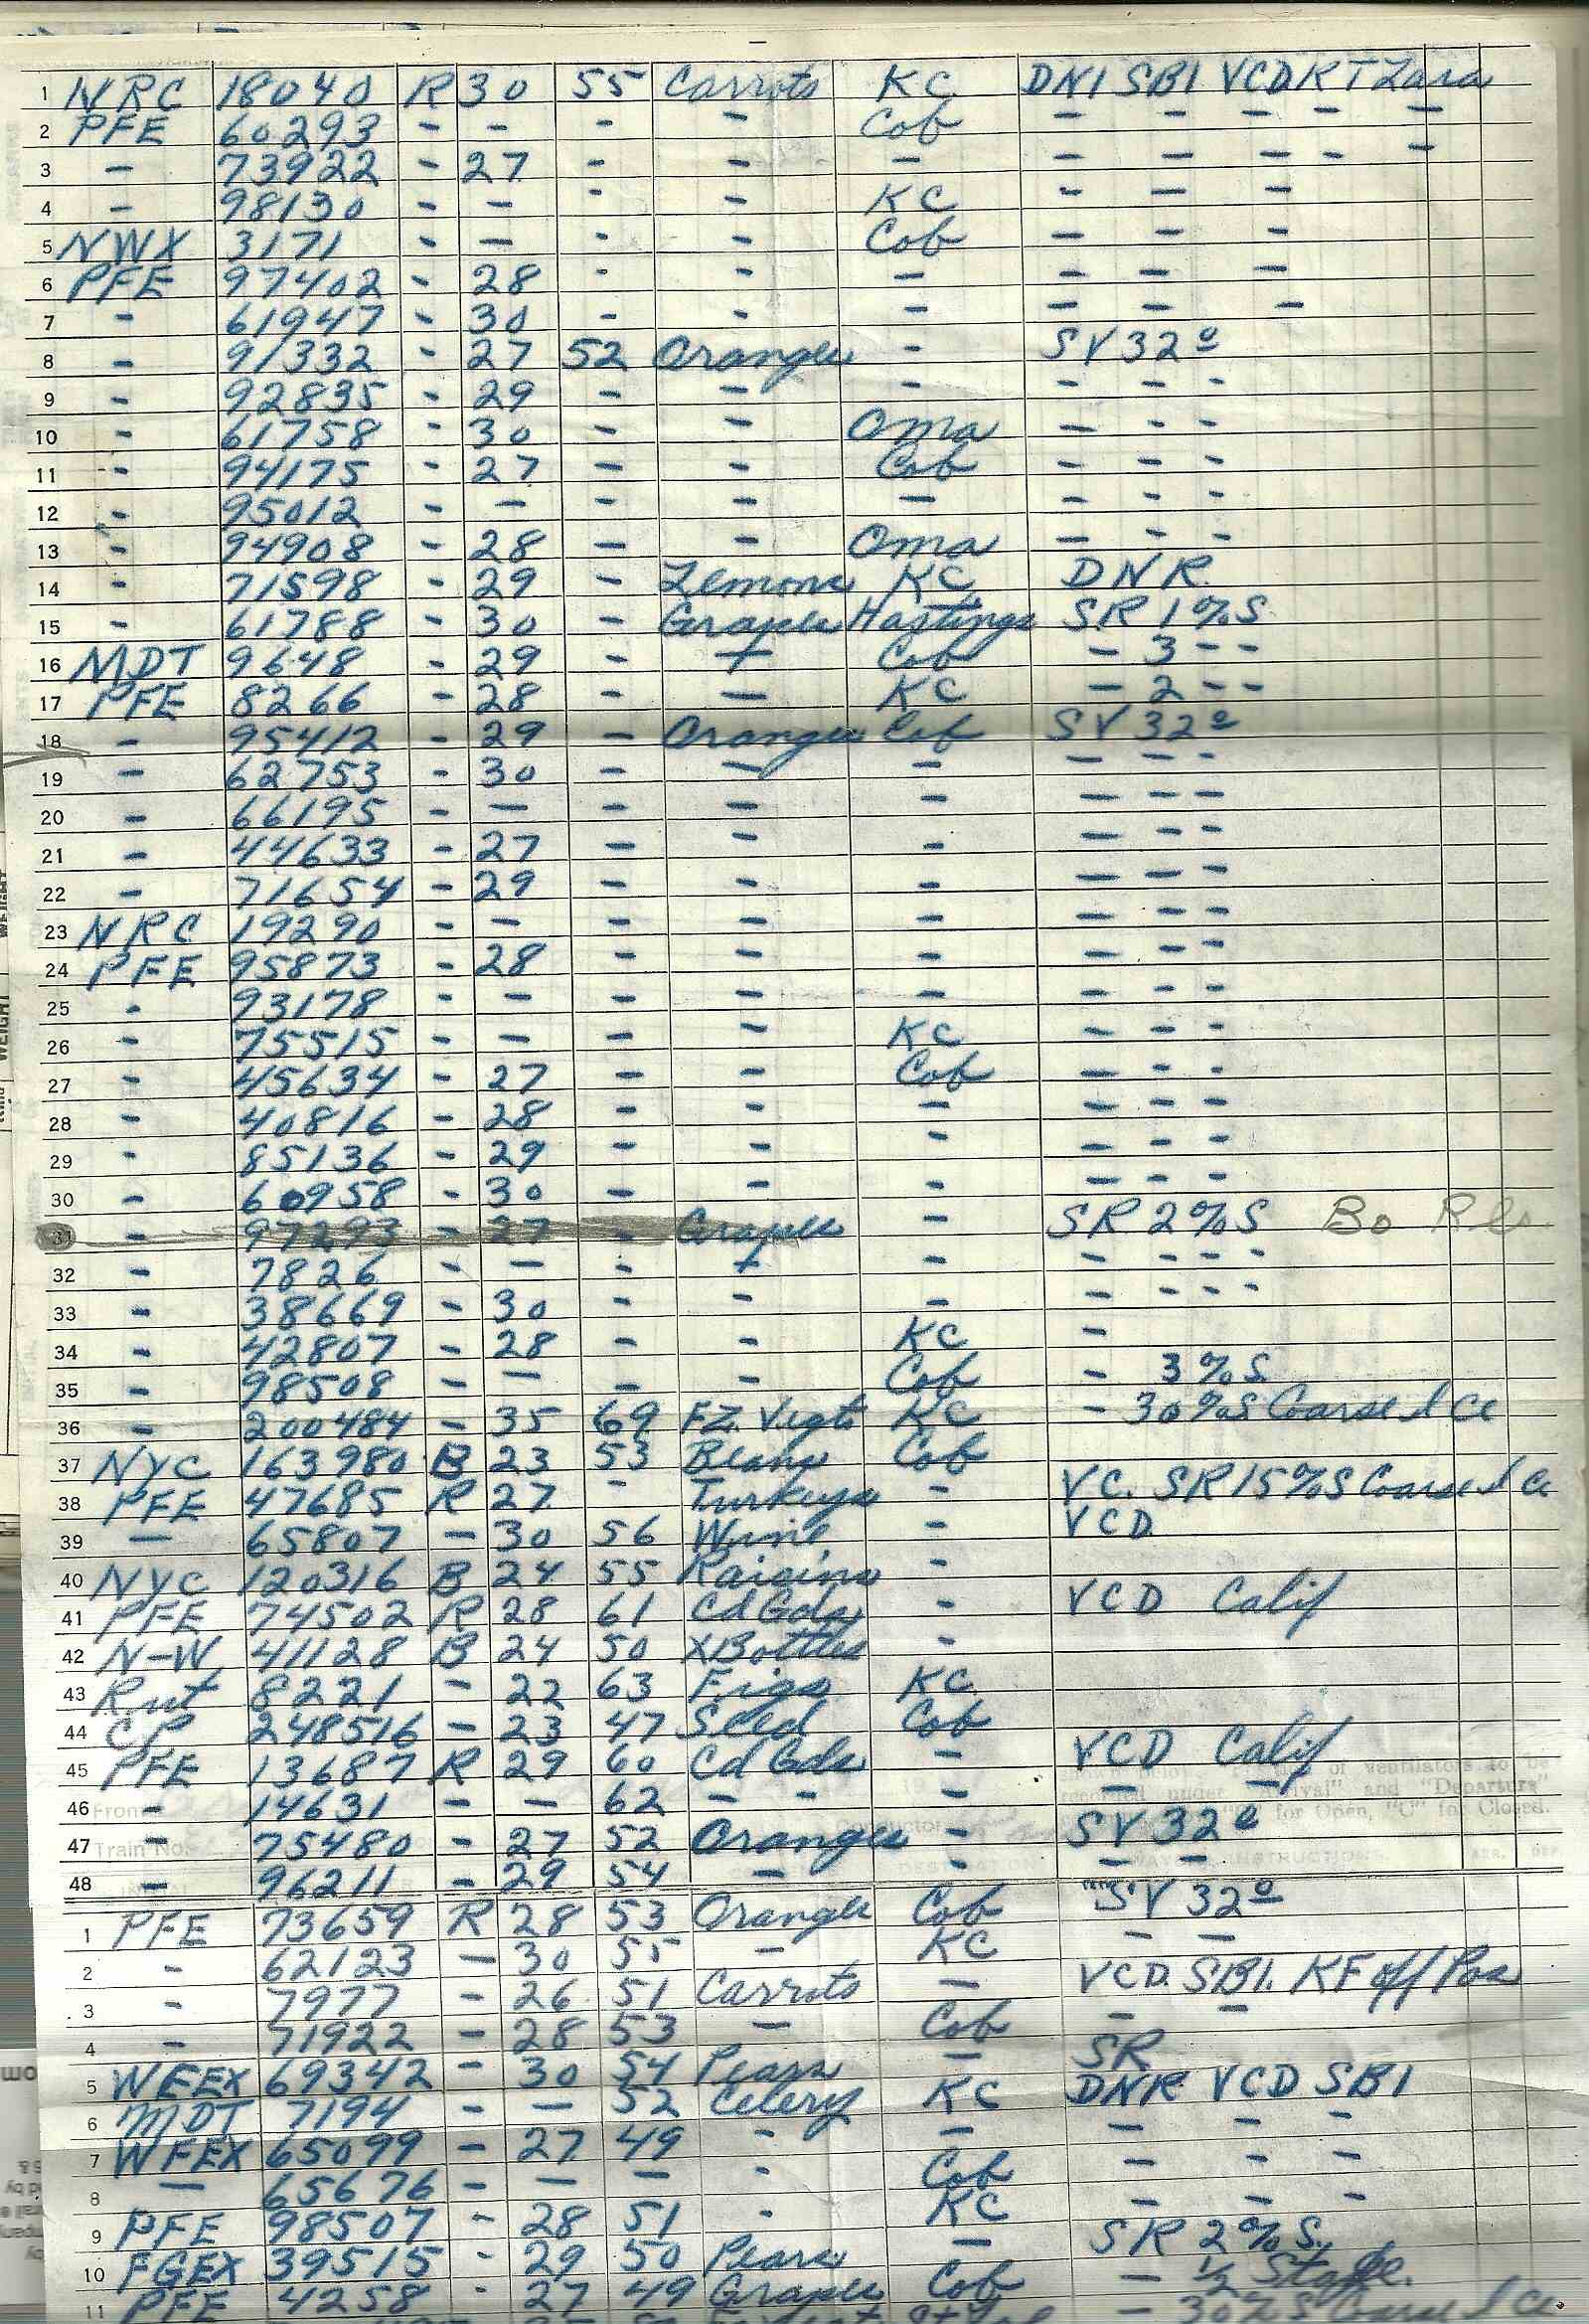 1 NRC 18040 R 30 55 Carrots KC DNI SBI VCD RT Zara
2 PFE 60293 - - - - Cob - - - - -
3 - 73922 - 27 - - - - - - - -
4 - 98130 - - - - KC - - -
5 NWX 3171 - - - - Cob - - -
6 PFE 97402 - 28 - - - - - -
7 - 61947 - 30 - - - - - -
8 - 91332 - 27 52 Oranges - SV 32º
9 - 92835 - 29 - - - - - -
10 - 61758 - 30 - - Oma - - -
11 - 94175 - 27 - - Cob - - -
12 - 95012 - - - - - - - -
13 - 94908 - 28 - - Oma - - -
14 - 71598 - 29 - Lemons KC DNR
15 - 61788 - 30 - Grapes Hastings SR 1%S
16 MDT 9648 - 29 - - Cob - 3 - -
17 PFE 8266 - 28 - - KC - 2 - -
18 - 95412 - 29 - Oranges Cob SV 32º
19 - 62753 - 30 - - - - - -
20 - 66195 - - - - - - - -
21 - 44633 - 27 - - - - - -
22 - 71654 - 29 - - - - - -
23 NRC 19290 - - - - - - - -
24 PFE 95873 - 28 - - - - - -
25 - 93178 - - - - - - - -
26 - 75515 - - - - KC - - -
27 - 45634 - 27 - - Cob - - -
28 - 40816 - 28 - - - - - -
29 - 85136 - 29 - - - - - -
30 - 60958 - 30 - - - - - -
31 - 97293 - 27 - Grapes - SR 2%S Bo Rls.
32 - 7826 - - - - - - - - -
33 - 38669 - 30 - - - - - - -
34 - 42807 - 28 - - KC -
35 - 98508 - - - - Cob - 3%S
36 - 200484 - 35 69 FZ. Vegts KC - 30%S Coarse Ice
37 NYC 163980 B 23 53 Beans Cob
38 PFE 47685 R 27 - Turkeys - VC. SR 15%S Coarse Ice
39 - 65807 - 30 56 Wine - VCD
40 NYC 120316 B 24 55 Raisins -
41 PFE 74502 R 28 61 Cd Gds - VCD Calif
42 N-W 41128 B 24 50 XBottles -
43 Rut 8221 - 22 63 Figs KC
44 CP 248516 - 23 47 Seed Cob
45 PFE 13687 R 29 60 Cd Gds - VCD Calif
46 - 14631 - - 62 - - - - -
47 - 75480 - 27 52 Oranges - SV 32º
48 - 96211 - 29 54 - - - -
1 PFE 73659 R 28 53 Oranges Cob SV 32º
2 - 62123 - 30 55 - KC - -
3 - 7977 - 26 51 Carrots - VCD. SBI. KF off Pos
4 - 71922 - 28 53 - Cob - -
5 WFEX 69342 - 30 54 Pears - SR
6 MDT 7194 - - 52 Celery KC DNR VCD SBI
7 WFEX 65099 - 27 49 - - - - -
8 - 65676 - - - - Cob - - -
9 PFE 98507 - 28 51 - KC - - -
10 FGEX 39515 - 29 50 Pears - SR 2%S.
11 PFE 4258 - 27 49 Grapes Cob - 1/2 Stage.